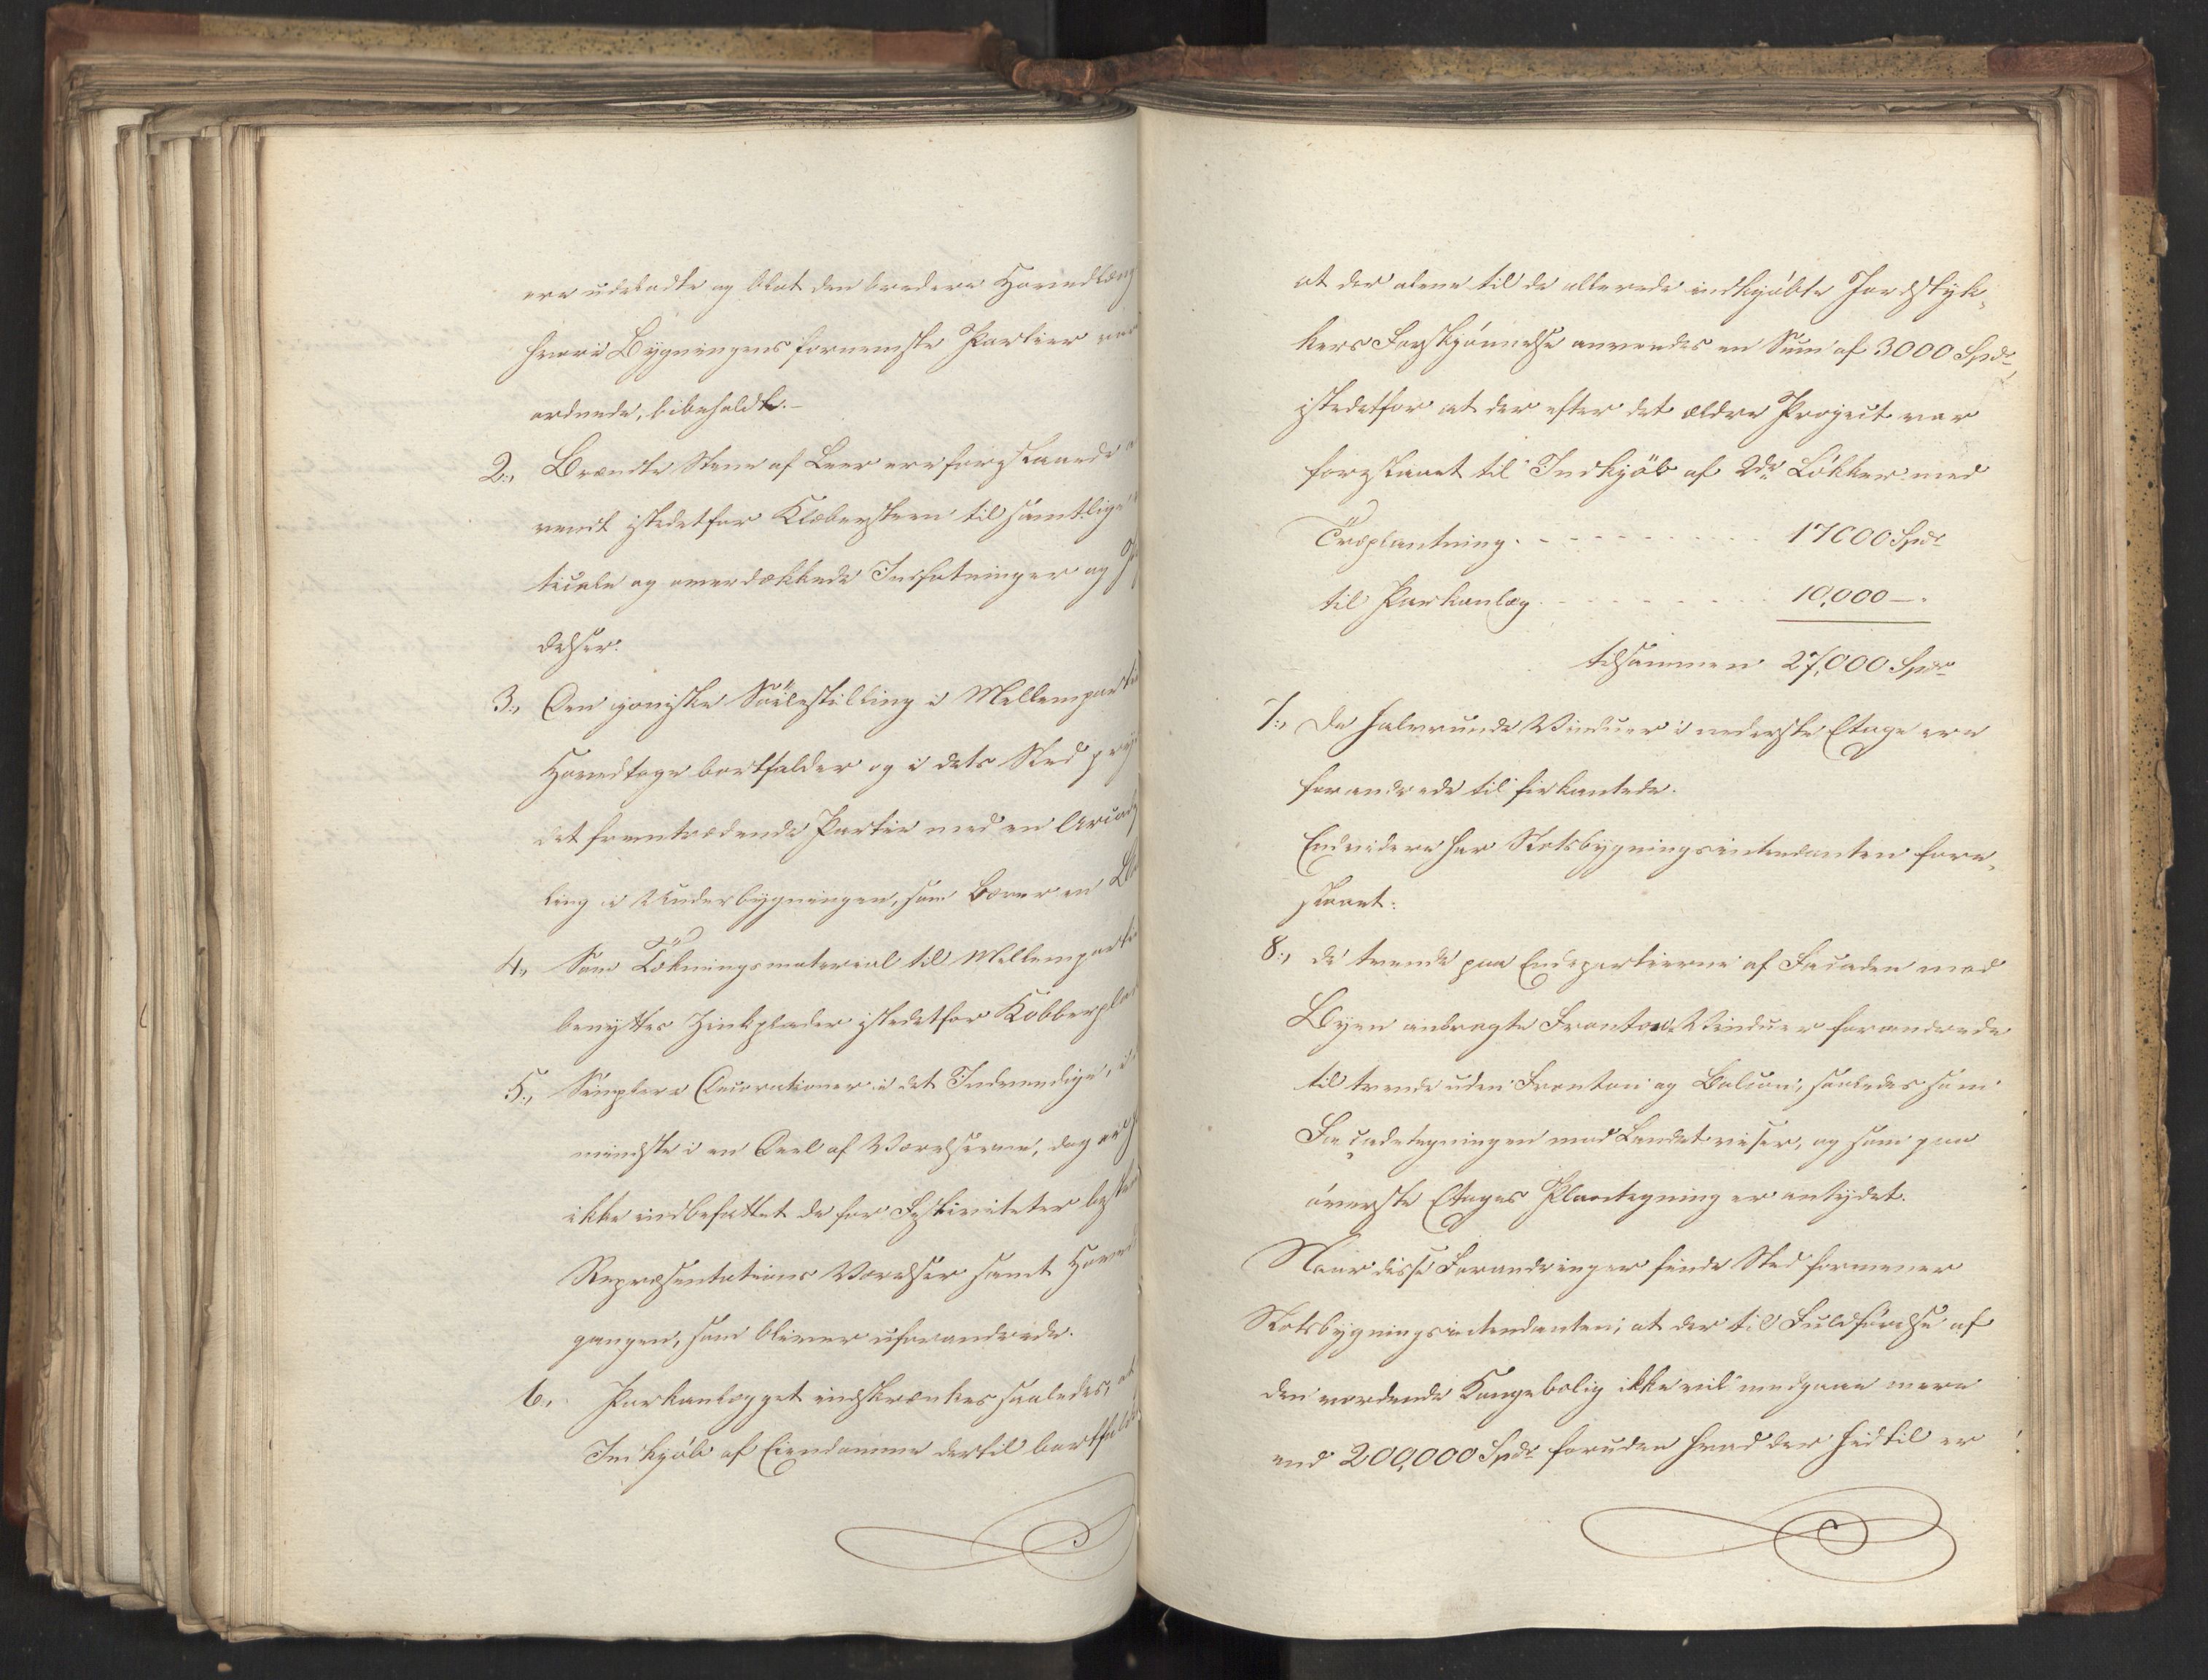 ere udeladte og blot den bredere Hovedlæng
hvori Bygningens fornemste Partier
ordnede, bibeholdt.-
2., Brændte Stene af Leer ere foreslaaede
vendt istedetfor Klæbersteen til samtlige
ticale og overdækkede Indfatninger og
delser.
3., Den joniske Søilestilling i Mellemparti
Hovedetage bortfalder og i dets Sted
det fremtrædende Partie med en Arcad
ling i Underbygningen, som bærer en
4., Som Tækningsmaterial til Mellemparti
benyttes Zinkplader istedetfor Kobberpla
5., Simplere Decorationer i det Indvendige, i
mindste i en Deel af Værelserne, dog
ikke indbefattet de for Festiviteter
Repræsentations Værelser samt Hoved
gangen, som bliver uforandrede.
6., Parkanlægget indskrænkes saaledes, at
Indkjøb af Eiendomme dertil bortfald
at der alene til de allerede indkjøbte Jordstyk-
kers Forskjønnelse anvendes en Sum af 3000 Spd,
istedetfor at der efter det ældre Project var
foreslaaet til Indkjøb af 2de Løkker med
Træplantning . - - - - - - - - 17000 Spd
til Parkanlæg - - - - - - - - 10,000 —.
tilsammen 27,000 Spd
7., De halvrunde Vinduer i nederste Etage ere
forandrede til firkantede.
Endvidere har Slotsbygningsintendanten fore-
slaaet:
8., de trende paa Endepartierne af Facaden mod
Byen anbragte Fronton Vinduer forandrede
til trende uden Fronton og Balcon, saaledes som
Façadetegningen mod Landet viser, og som paa
øverste Etages Plantegning er antydet.
Naar disse Forandringer finde Sted formener
Slotsbygningsintendanten, at der til Fuldførelse af
den vordende Kongebolig ikke vil medgaae mere
end 200,000 Spd foruden hvad der hidtil er